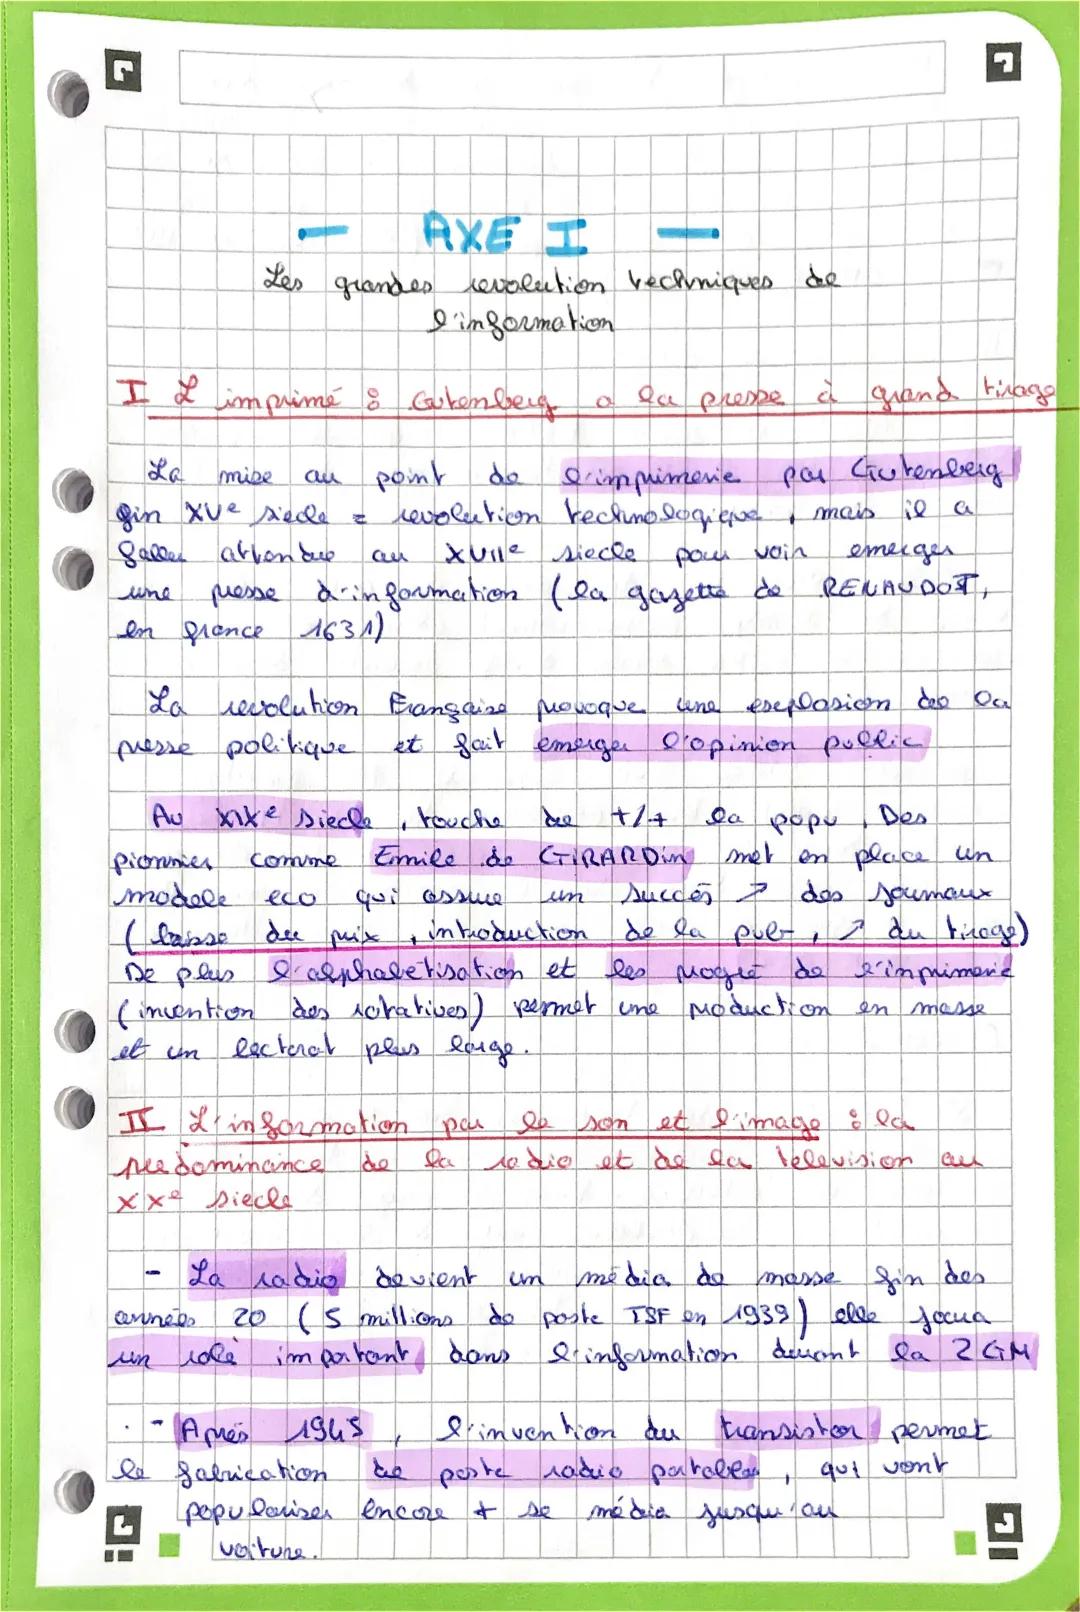 — AXE I —
Les grandes revolution techniques de
l'information
I L'imprimé : Gutenberg a la presse à grand tirage
La mise au point de l'imprimerie par Gutenberg
fin XVe siecle = revolution technologique, mais il a
fallu attendre au XVIIe siecle pour voir emerger
une presse d'information (la gazette de RENAUDOT,
en france 1631)
La revolution Française provoque une explosion de la
presse politique et fait emerger l'opinion public
Au XIXe siecle, touche de +/+ la popu. Des
pionnier comme Emile de GIRARDin met en place un
modele eco qui assure un succés ↗ des journaux
(baisse du prix, introduction de la pub, ↗ du tirage)
De plus l'alphabetisation et les progré de l'imprimerie
(invention des rotatives) permet une production en masse
et un lectorat plus large.
II L'information par le son et l'image : la
predominance de la radio et de la television au
XXe siecle
- La radio devient un média de masse fin des
années 20 (5 millions de poste TSF en 1939) elle joua
un rolé important dans l'information durant la 2GM
- Aprés 1945, l'invention du transistor permet
le fabrication de poste radio portables, qui vont
populariser encore + se média jusqu'au
voiture.